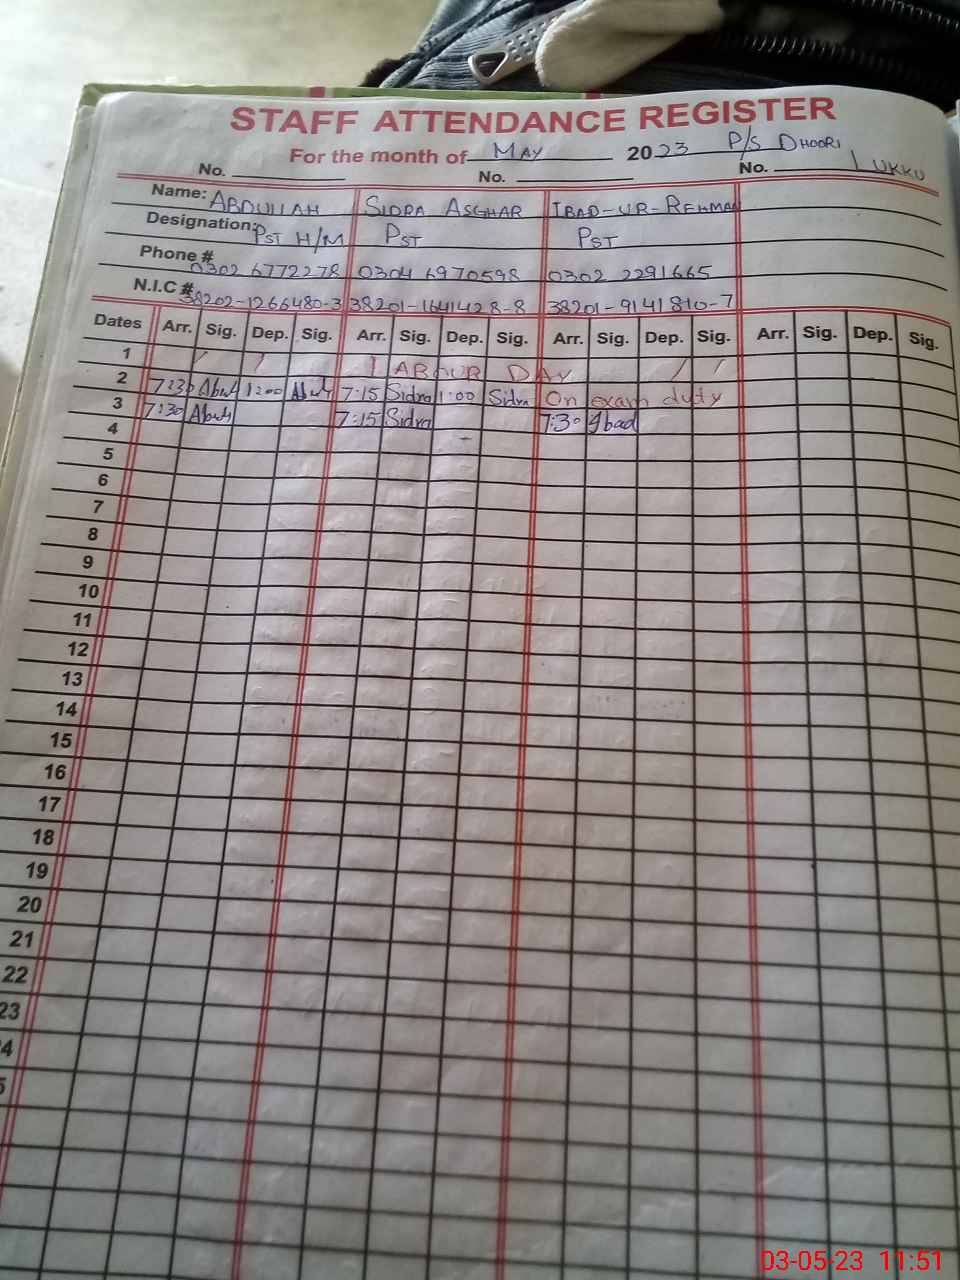 STAFF ATTENDANCE REGISTER
For the month of MAY 2023 P/S DHOORI
No. No. No. LUKKU
Name: ABDULLAH SIDRA ASGHAR IBAD-UR-REHMAN
Designation: PST H/M PST PST
Phone # 0302 6772278 0304 6970598 0302 2291665
N.I.C # 38202-1266480-3 38201-1641428-8 38201-9141810-7
Dates Arr. Sig. Dep. Sig. Arr. Sig. Dep. Sig. Arr. Sig. Dep. Sig. Arr. Sig. Dep. Sig.
1 LABOUR DAY
2 7:30 1:00 7:15 Sidra 1:00 Sidra On exam duty
3 7:30 7:15 Sidra 7:30 Ibad
4
5
6
7
8
9
10
11
12
13
14
15
16
17
18
19
20
21
22
23
4
5
03-05-23 11:51